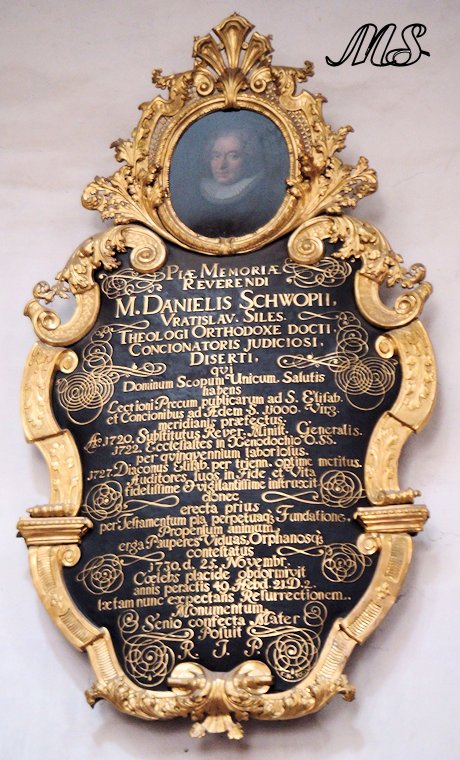 MS
PIÆ MEMORIÆ
REVERENDI
M. DANIELIS SCHWOPII,
VRATISLAV. SILES.
THEOLOGI ORTHODOXE DOCTI
CONCIONATORIS JUDICIOSI,
DISERTI,
qui
Dominum Scopum Unicum Salutis
habens
Lectioni Precum publicarum ad S. Elisab.
et Concionibus ad Ædem S. Virg.
meridianis præfectus
Ao. 1720. Substitutus Rever. Minist. Generalis.
1722. Ecclesiastes in Xenodochio O.SS.
per quinquennium laboriosus.
1727. Diaconus Elisab. per trienn. optime meritus.
Auditores suos in Fide et Vita
fidelissime & vigilantissime instruxit
donec
erecta prius
per Testamentum pia perpetuaq; Fundatione,
Propensum animum,
erga Pauperes Viduas, Orphanosq;
contestatus
1730. d. 25. Novembr.
Cœlebs placide obdormivit
annis peractis 40. Hebd. 21. D. 2.
lætam nunc expectans Resurrectionem.
Monumentum
Senio confecta Mater
Posuit
R. I. P.